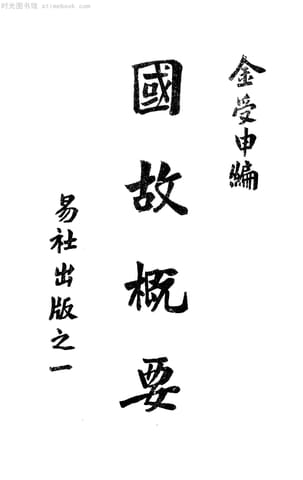 时光图书馆 atimebook.com
金受申編
國故概要
易社出版之一